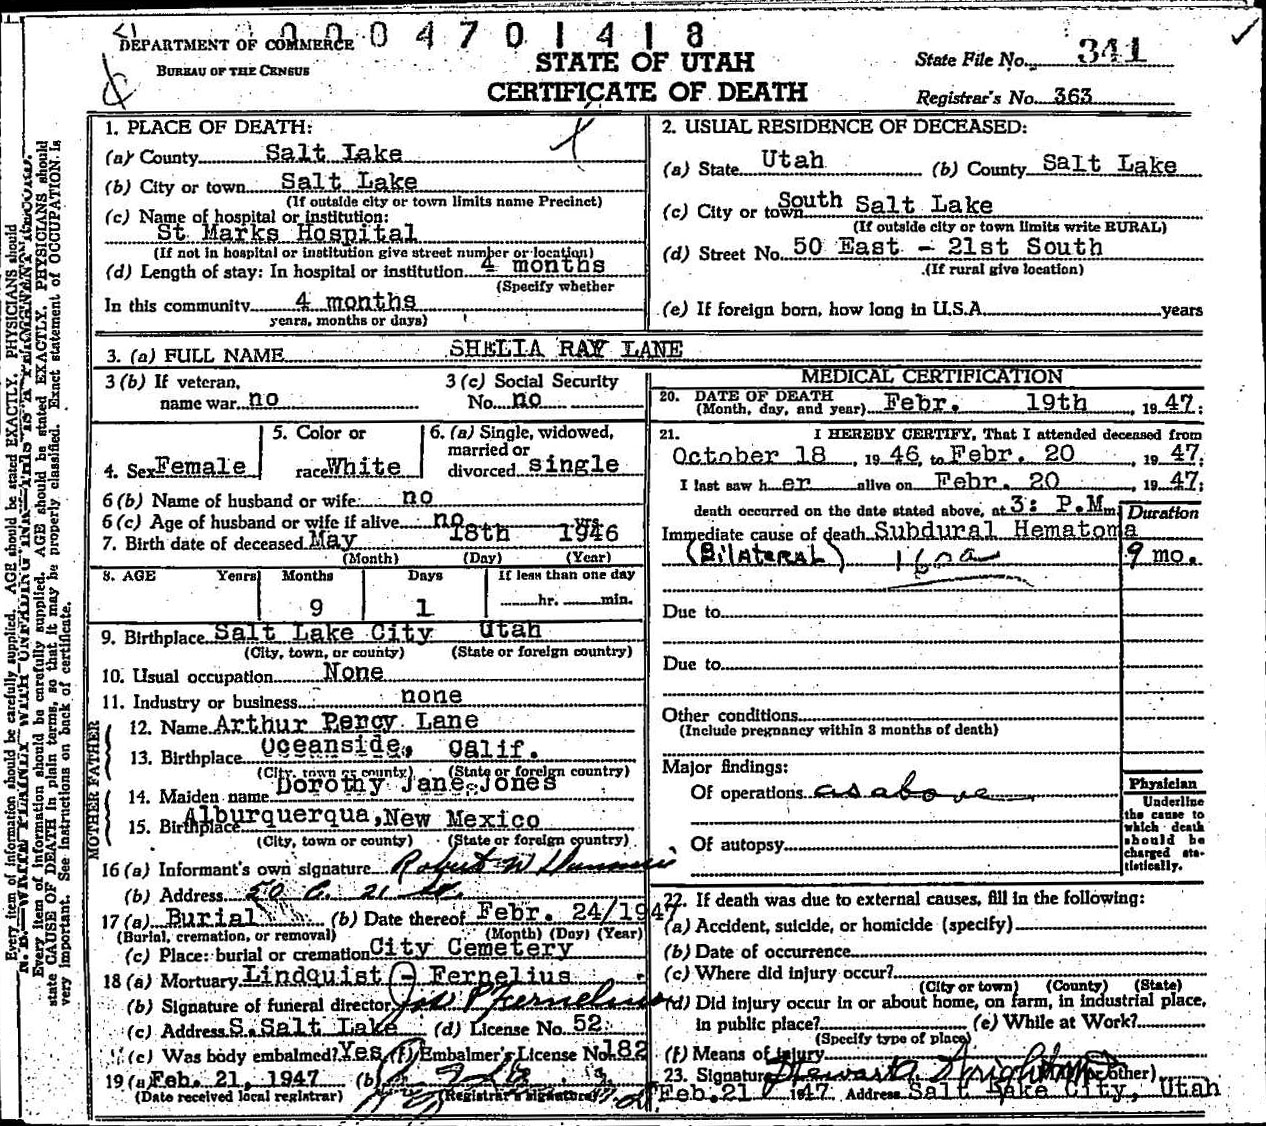 0004701418
DEPARTMENT OF COMMERCE
BUREAU OF THE CENSUS
STATE OF UTAH
CERTIFICATE OF DEATH
State File No. 341
Registrar's No. 363
1. PLACE OF DEATH:
(a) County Salt Lake
(b) City or town Salt Lake
(If outside city or town limits name Precinct)
(c) Name of hospital or institution:
St Marks Hospital
(If not in hospital or institution give street number or location)
(d) Length of stay: In hospital or institution 4 months
(Specify whether
In this community 4 months
years, months or days)
2. USUAL RESIDENCE OF DECEASED:
(a) State Utah (b) County Salt Lake
(c) City or town South Salt Lake
(If outside city or town limits write RURAL)
(d) Street No. 50 East - 21st South
(If rural give location)
(e) If foreign born, how long in U.S.A. years
3. (a) FULL NAME SHELIA RAY LANE
3 (b) If veteran, name war no
3 (c) Social Security No. no
4. Sex Female
5. Color or race White
6. (a) Single, widowed, married or divorced single
6 (b) Name of husband or wife no
6 (c) Age of husband or wife if alive no yrs.
7. Birth date of deceased May 18th 1946
(Month) (Day) (Year)
8. AGE Years Months Days If less than one day
9 1 hr. min.
9. Birthplace Salt Lake City Utah
(City, town, or county) (State or foreign country)
10. Usual occupation None
11. Industry or business none
FATHER
12. Name Arthur Percy Lane
13. Birthplace Oceanside, Calif.
(City, town or county) (State or foreign country)
MOTHER
14. Maiden name Dorothy Jane Jones
15. Birthplace Alburquerqua, New Mexico
(City, town or county) (State or foreign country)
16 (a) Informant's own signature Robert W
(b) Address 50 E. 21 So.
17 (a) Burial (b) Date thereof Febr. 24/1947
(Burial, cremation, or removal) (Month) (Day) (Year)
(c) Place: burial or cremation City Cemetery
18 (a) Mortuary Lindquist - Fernelius
(b) Signature of funeral director Jos P Fernelius
(c) Address S. Salt Lake (d) License No. 52
(e) Was body embalmed? Yes (f) Embalmer's License No. 182
19 (a) Feb. 21, 1947 (b)
(Date received local registrar) (Registrar's signature)
MEDICAL CERTIFICATION
20. DATE OF DEATH
(Month, day, and year) Febr. 19th, 1947:
21. I HEREBY CERTIFY, That I attended deceased from
October 18, 1946, to Febr. 20, 1947;
I last saw her alive on Febr. 20, 1947:
death occurred on the date stated above, at 3: P.M.
Duration
Immediate cause of death Subdural Hematoma
(Bilateral) 160a 9 mo.
Due to
Due to
Other conditions
(Include pregnancy within 3 months of death)
Major findings:
Of operations as above
Of autopsy
Physician
Underline the cause to which death should be charged statistically.
22. If death was due to external causes, fill in the following:
(a) Accident, suicide, or homicide (specify)
(b) Date of occurrence
(c) Where did injury occur?
(City or town) (County) (State)
(d) Did injury occur in or about home, on farm, in industrial place,
in public place? (e) While at Work?
(Specify type of place)
(f) Means of injury
23. Signature Stewart A Wright (or other)
Feb. 21 1947 Address Salt Lake City, Utah
N. B.—WRITE PLAINLY WITH UNFADING INK—THIS IS A PERMANENT RECORD.
Every item of information should be carefully supplied. AGE should be stated EXACTLY. PHYSICIANS should
state CAUSE OF DEATH in plain terms, so that it may be properly classified. Exact statement of OCCUPATION is
very important. See instructions on back of certificate.